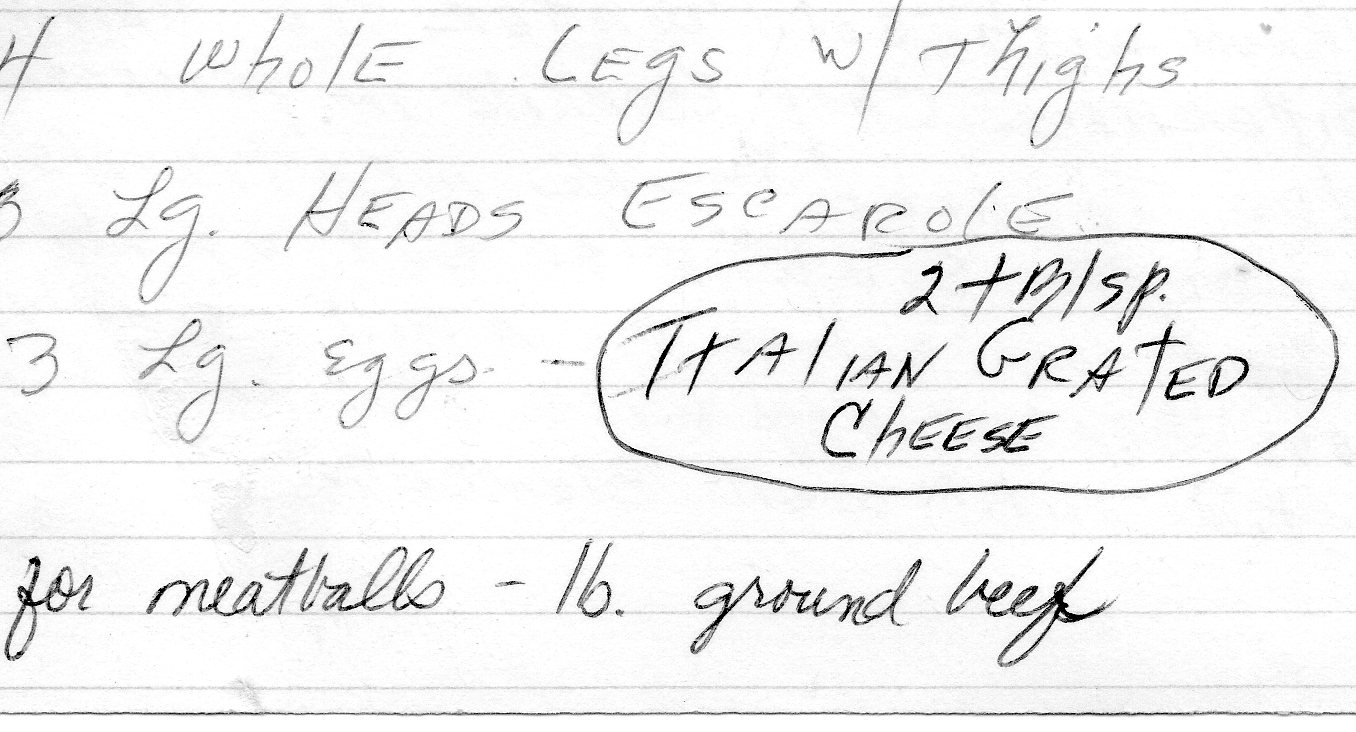 4 Whole Legs w/ Thighs
3 Lg. HEADS ESCAROLE
2 tBlsp.
3 Lg. Eggs - ITALIAN GRATED
ChEESE
for meatballs - lb. ground beef